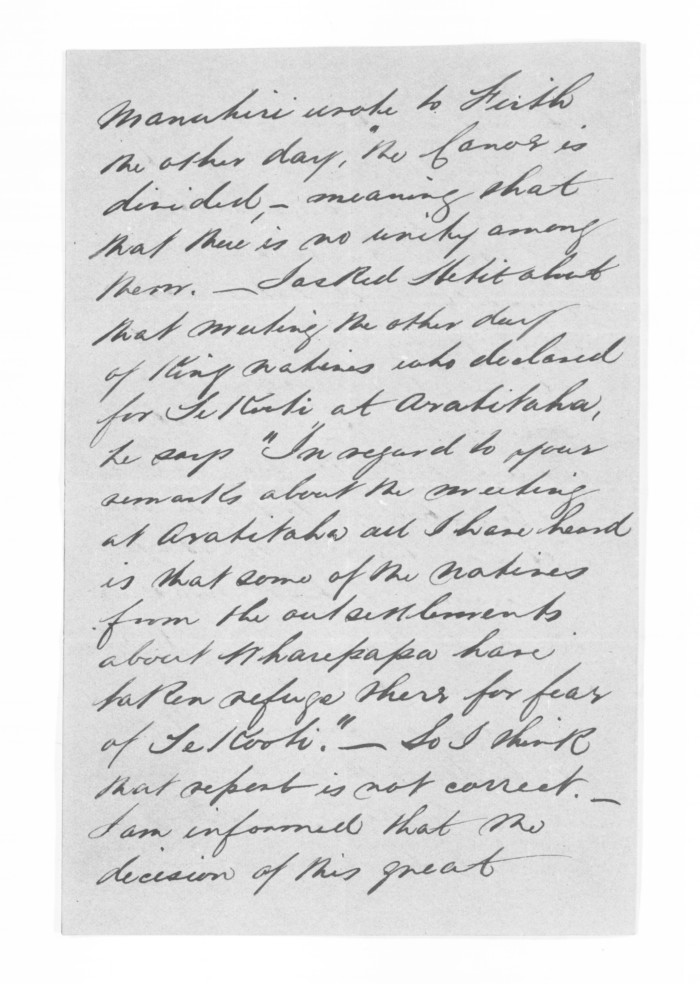 Manuhiri wrote to Firth
the other day, "the Canoe is
divided, – meaning that
that there is no unity among
them. — I asked Hetit about
that meeting the other day
of King natives who declared
for Te Kooti, at Aratitaha,
he says "In regard to your
remarks about the meeting
at Aratitaha all I have heard
is that some of the natives
from the outsettlements
about Wharepapa have
taken refuge there for fear
of Te Kooti." — So I think
that report is not correct. —
I am informed that the
decision of this great